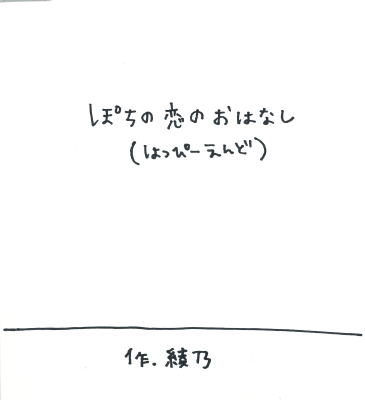 ぽちの恋のおはなし
(はっぴーえんど)
作.綾乃